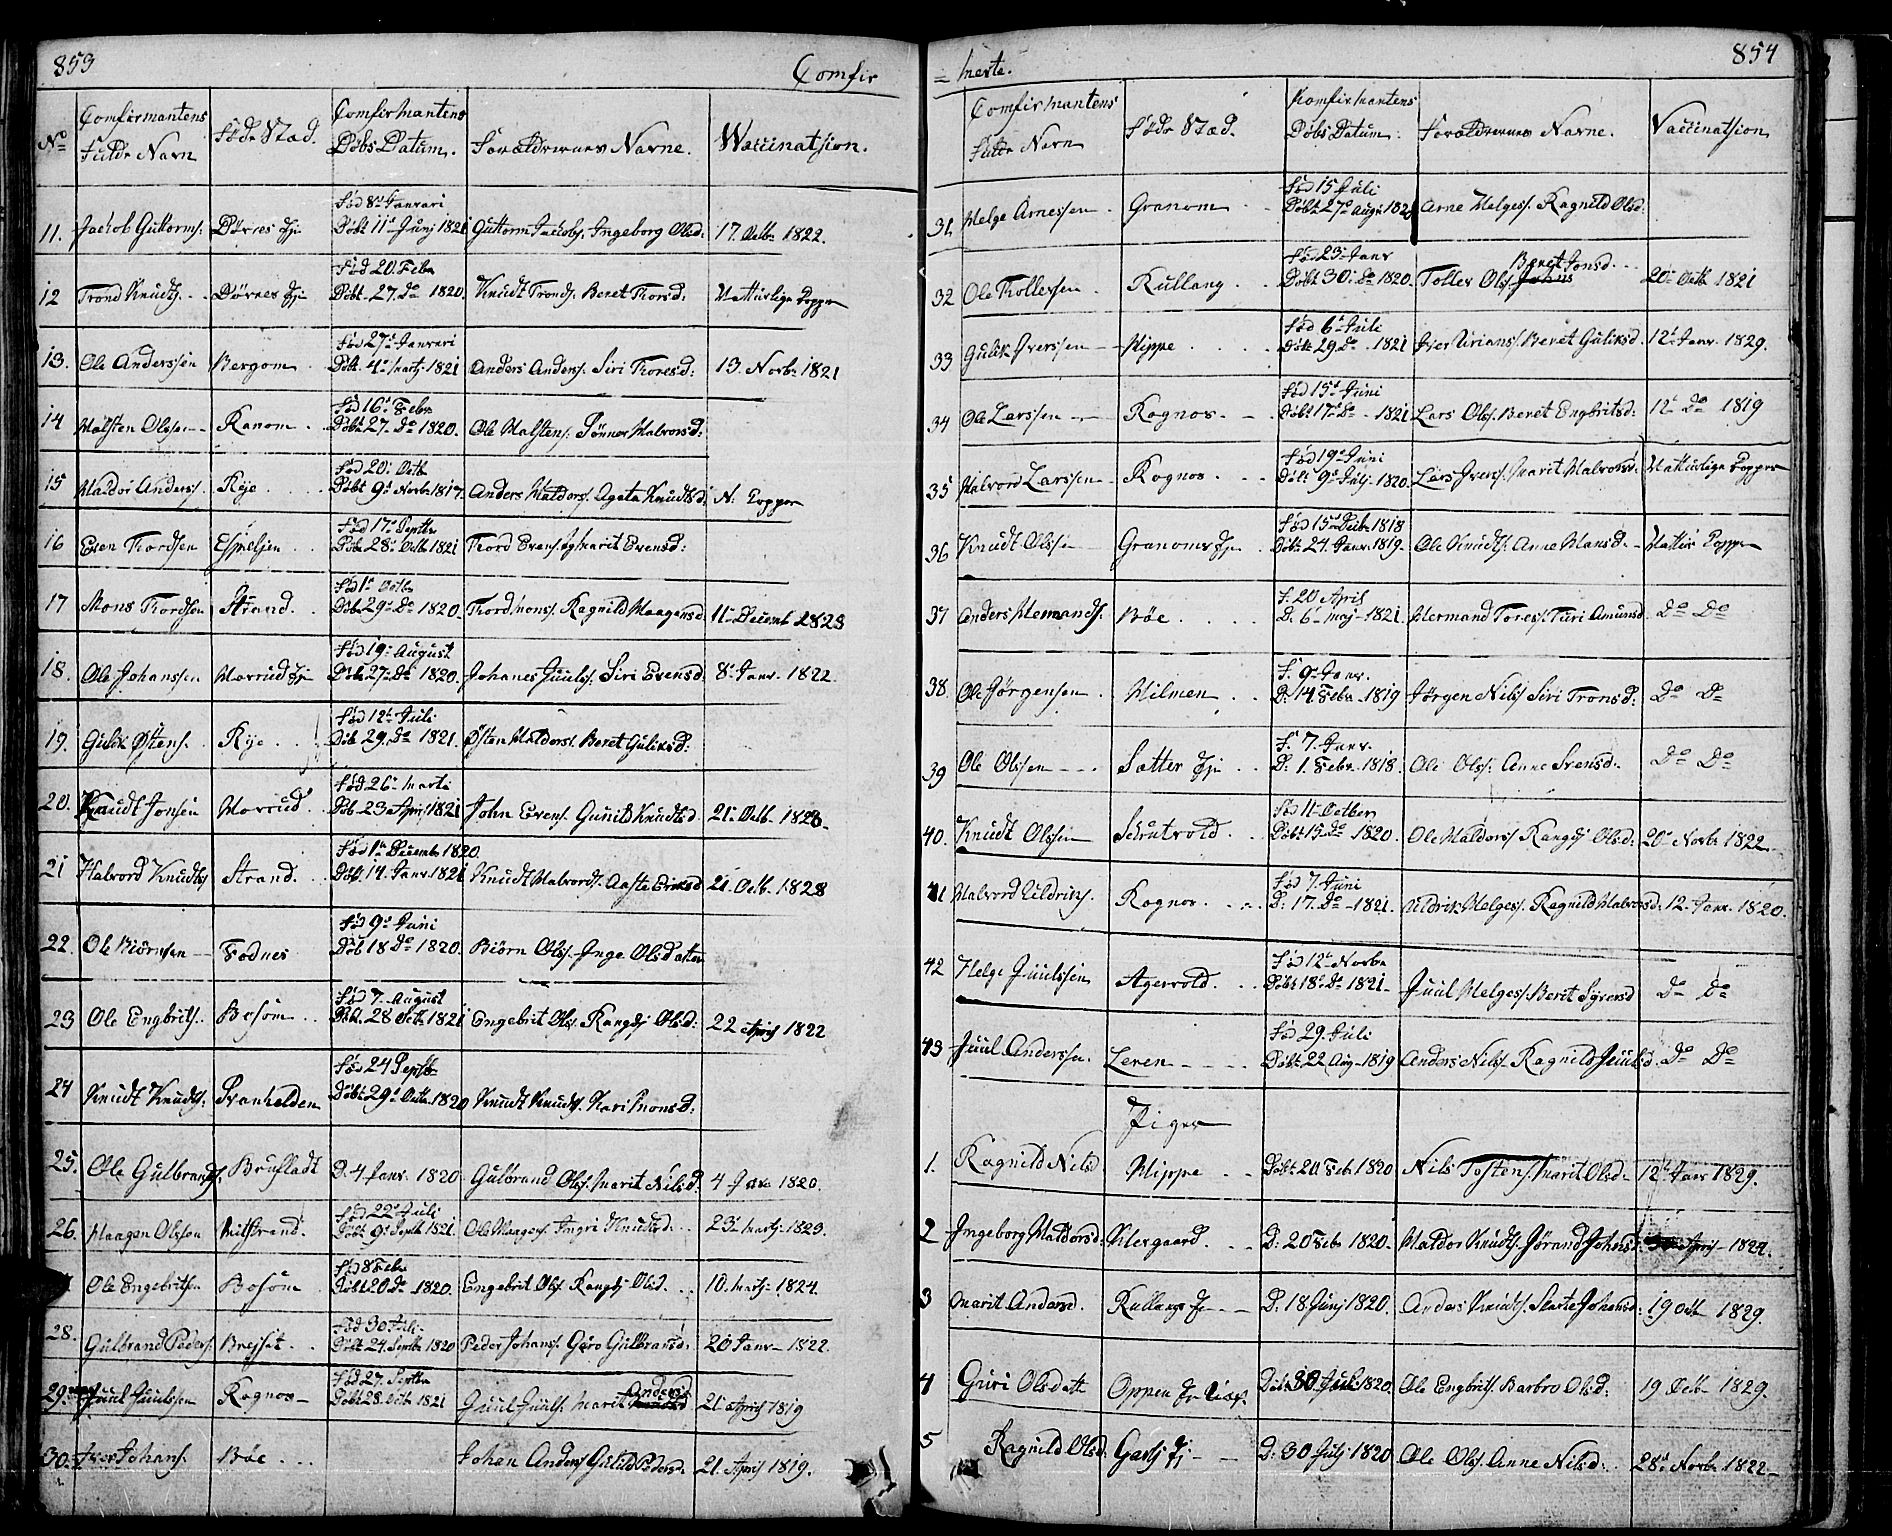 853
Comfir
No
Comfirmantens Fulde Navn
Føde Stad.
Comfirmantens Døbs Datum.
Forældrernes Navne.
Waccinatsion.
11. Jacob Guttorms. Børnes Eje Fød 8de Januari Døbt 11te Junj 1821 Guttorm Jacobs. Ingeborg Olsd: 17. Octb. 1822.
12 Trond Knudts. Børnes Eje Fød 20. Febr Døbt 27. Do 1820. Knudt Tronds. Beret Thorsd: Natturlige Copper
13. Ole Anderssen Bergom Fød 27de Januari Døbt 4de Martj 1821 Anders Anders. Siri Thoresd: 13. Novbr 1821
14 Halsten Olssen Ranom Fød 16de Febr Døbt 27. Do 1820. Ole Halstens. Halvorsd:
15 Haldor Anders. Rye Fød 20. Octb Døbt 9de Novbr 1817. Anders Haldors. Agata Knudtsd: N. Copper
16 Even Thordsen Espelien Fød 17de Septbr Døbt 28de Octb 1821 Thord Evens. Og Marit Evensd:
17 Mons Thordsen Strand. Fød 1te Octbr Døbt 29de Do 1820. Thord Mons. Ragnild Haagensd: 11te Decemb 1823
18. Ole Johanssen Morrud Eje Fød 19de August Døbt 27de Do 1820. Johanes Juuls. Siri Evensd: 8de Janr. 1822
19. Gulik Østens. Rye Fød 12te Juli Døbt 29. Do 1821. Østen Haldors. Beret Guliksd:
20. Knudt Jonsen Morrud Fød 26de Marti Døb. 23 April 1821 John Evens. Gunild Knudtsd. 21de Octb. 1823
21 Halvord Knudts Strand. Fød 1te Decembr 1820 Døbt 14. Janr 1821 Knudt Halvords. Aaste Eriksd 21. Octb. 1828
22. Ole Biörnsen Fodnes Fød 9de Juni Døbt 18 Do 1820. Biörn Ols. Inge Olsdatter
23 Ole Engbrits. Bosom Fød 7. August Døbt. 28 Octb 1821 Engebrit Ols. Rangdj Olsd: 22 April 1822
24 Knudt Knudts. Fød 24 Septb Døbt 29de Octb 1820 Knudt Knudts. Kari Monsd:
25. Ole Gulbrands. Brufladt D. 4 Janr. 1820 Gulbrand Ols. Marit Nilsd: 4 Janr 1820.
26. Haagen Olsson Milstrand. Fød 22de Juli Døbt 9de Septb 1821. Ole Haagens. Ingri Knudtsd. 23de Martj 1823
Ole Engebrits. Bosom Fød 8 Febr Døbt 20. Do 1820. Engebrit Ols. Rangdj Olsd. 10. Martj 1824.
28. Gulbrand Peders. Fød 30 Juli Døbt 24. Septb 1820 Peder Johans. Goro Gulbransd. 20 Janr 1822.
29. Juul Juulssen Rognos Fød 27. Septbr Døbt 28. Octb 1821 Juul Juuls. Marit Andersd 21de April 1819
30. Iver Johans. Böe Johan Anders. Gulild Pedersd. 21. April 1819.
= merte.
854
Comfirmantens Fulde Navn
Føde Stæd.
Komfirmantens Døbs Datum.
Forældrernes Navne.
Vaccinatsion
31. Helge Arnessen Granom Fød 15 Juli Døbt 27de Augu: 1821 Arne Helges. Ragnild Olsd.
32 Ole Thollefsen Kullang Fød 23de Janr Døbt 30te Do 1820. Toller Ols. Beret Jonsd. 20de Octb 1821
33 Gulik Iverssen Hippe Fød 6te Juli Døbt 29. Do 1821 Iver Urians. Beret Guliksd: 12te Janr. 1829.
34 Ole Larssen Rognos Fød 15de Juni Døbt 17de Do 1821 Lars Ols. Beret Engbritsd: 12te Do 1819
35 Halvord Larssen Rognos Fød 19de Juni Døbt 9de Julj 1820. Lars Ivers. Marit Halvorsd: Natturlige Copper
36 Knudt Olssen Granoms Eje Fød 15de Decbr 1818 Døbt 24. Janr. 1819. Ole Knudts. Anne Hansd. Nattur Copper
37 Anders Hermands. Böe F. 20 April D. 6te Maj 1821. Hermand Tores. Turi Amundsd Do Do
38. Ole Jörgensen Hilmen F. 9de Janr. D. 14. Febr. 1819 Jörgen Nils. Siri Tronsd: Do Do
39 Ole Olssen Satter Eje F. 7. Janr. D. 1. Febr. 1818. Ole Ols. Anne Svensd. Do Do
40. Knudt Olssen Skrutvold Fød 11te Octber Døbt 15. Do 1820. Ole Haldors. Rangdj Olsd: 20de Novbr 1822
41 Halvord Uldriks. Rognos. Fød 7. Juni D: 17. Do 1821. Uldrik Helges. Ragnild Halvorsd: 12. Janr. 1820.
42 Helge Juulssen Agervold. Fød 12te Novbr Døbt 18de Do 1821 Juul Helges. Berit Syversd Do Do
43 Juul Anderssen. Leren Fød 29. Juli Døbt 22 Aug 1819 Anders Nils. Ragnild Juulsd. Do Do
Piger
1. Ragnild Nilsd Hippe Døbt 20 Feb. 1820 Nils Tostens. Marit Olsd. 12te Janr 1829.
2 Ingeborg Haldorsd: Klergaard. D: 20 Feb. 1820 Haldor Knudts. Jörand Johnsd. April 1824.
3 Marit Andersd. Kullangs Eje D. 18. Junj 1820. Anders Knudts. Johansd: 19 Octb 1829.
4 Guri Olsdatt Oppen Eje Døbt 30 Juli 1820. Ole Engbrits. Barbro Olsd: 19 Octb 1829.
5 Ragnild Olsd: Garlj Ej D. 30 Julj 1820 Ole Ols. Anne Nilsd. 28de Novbr 1822